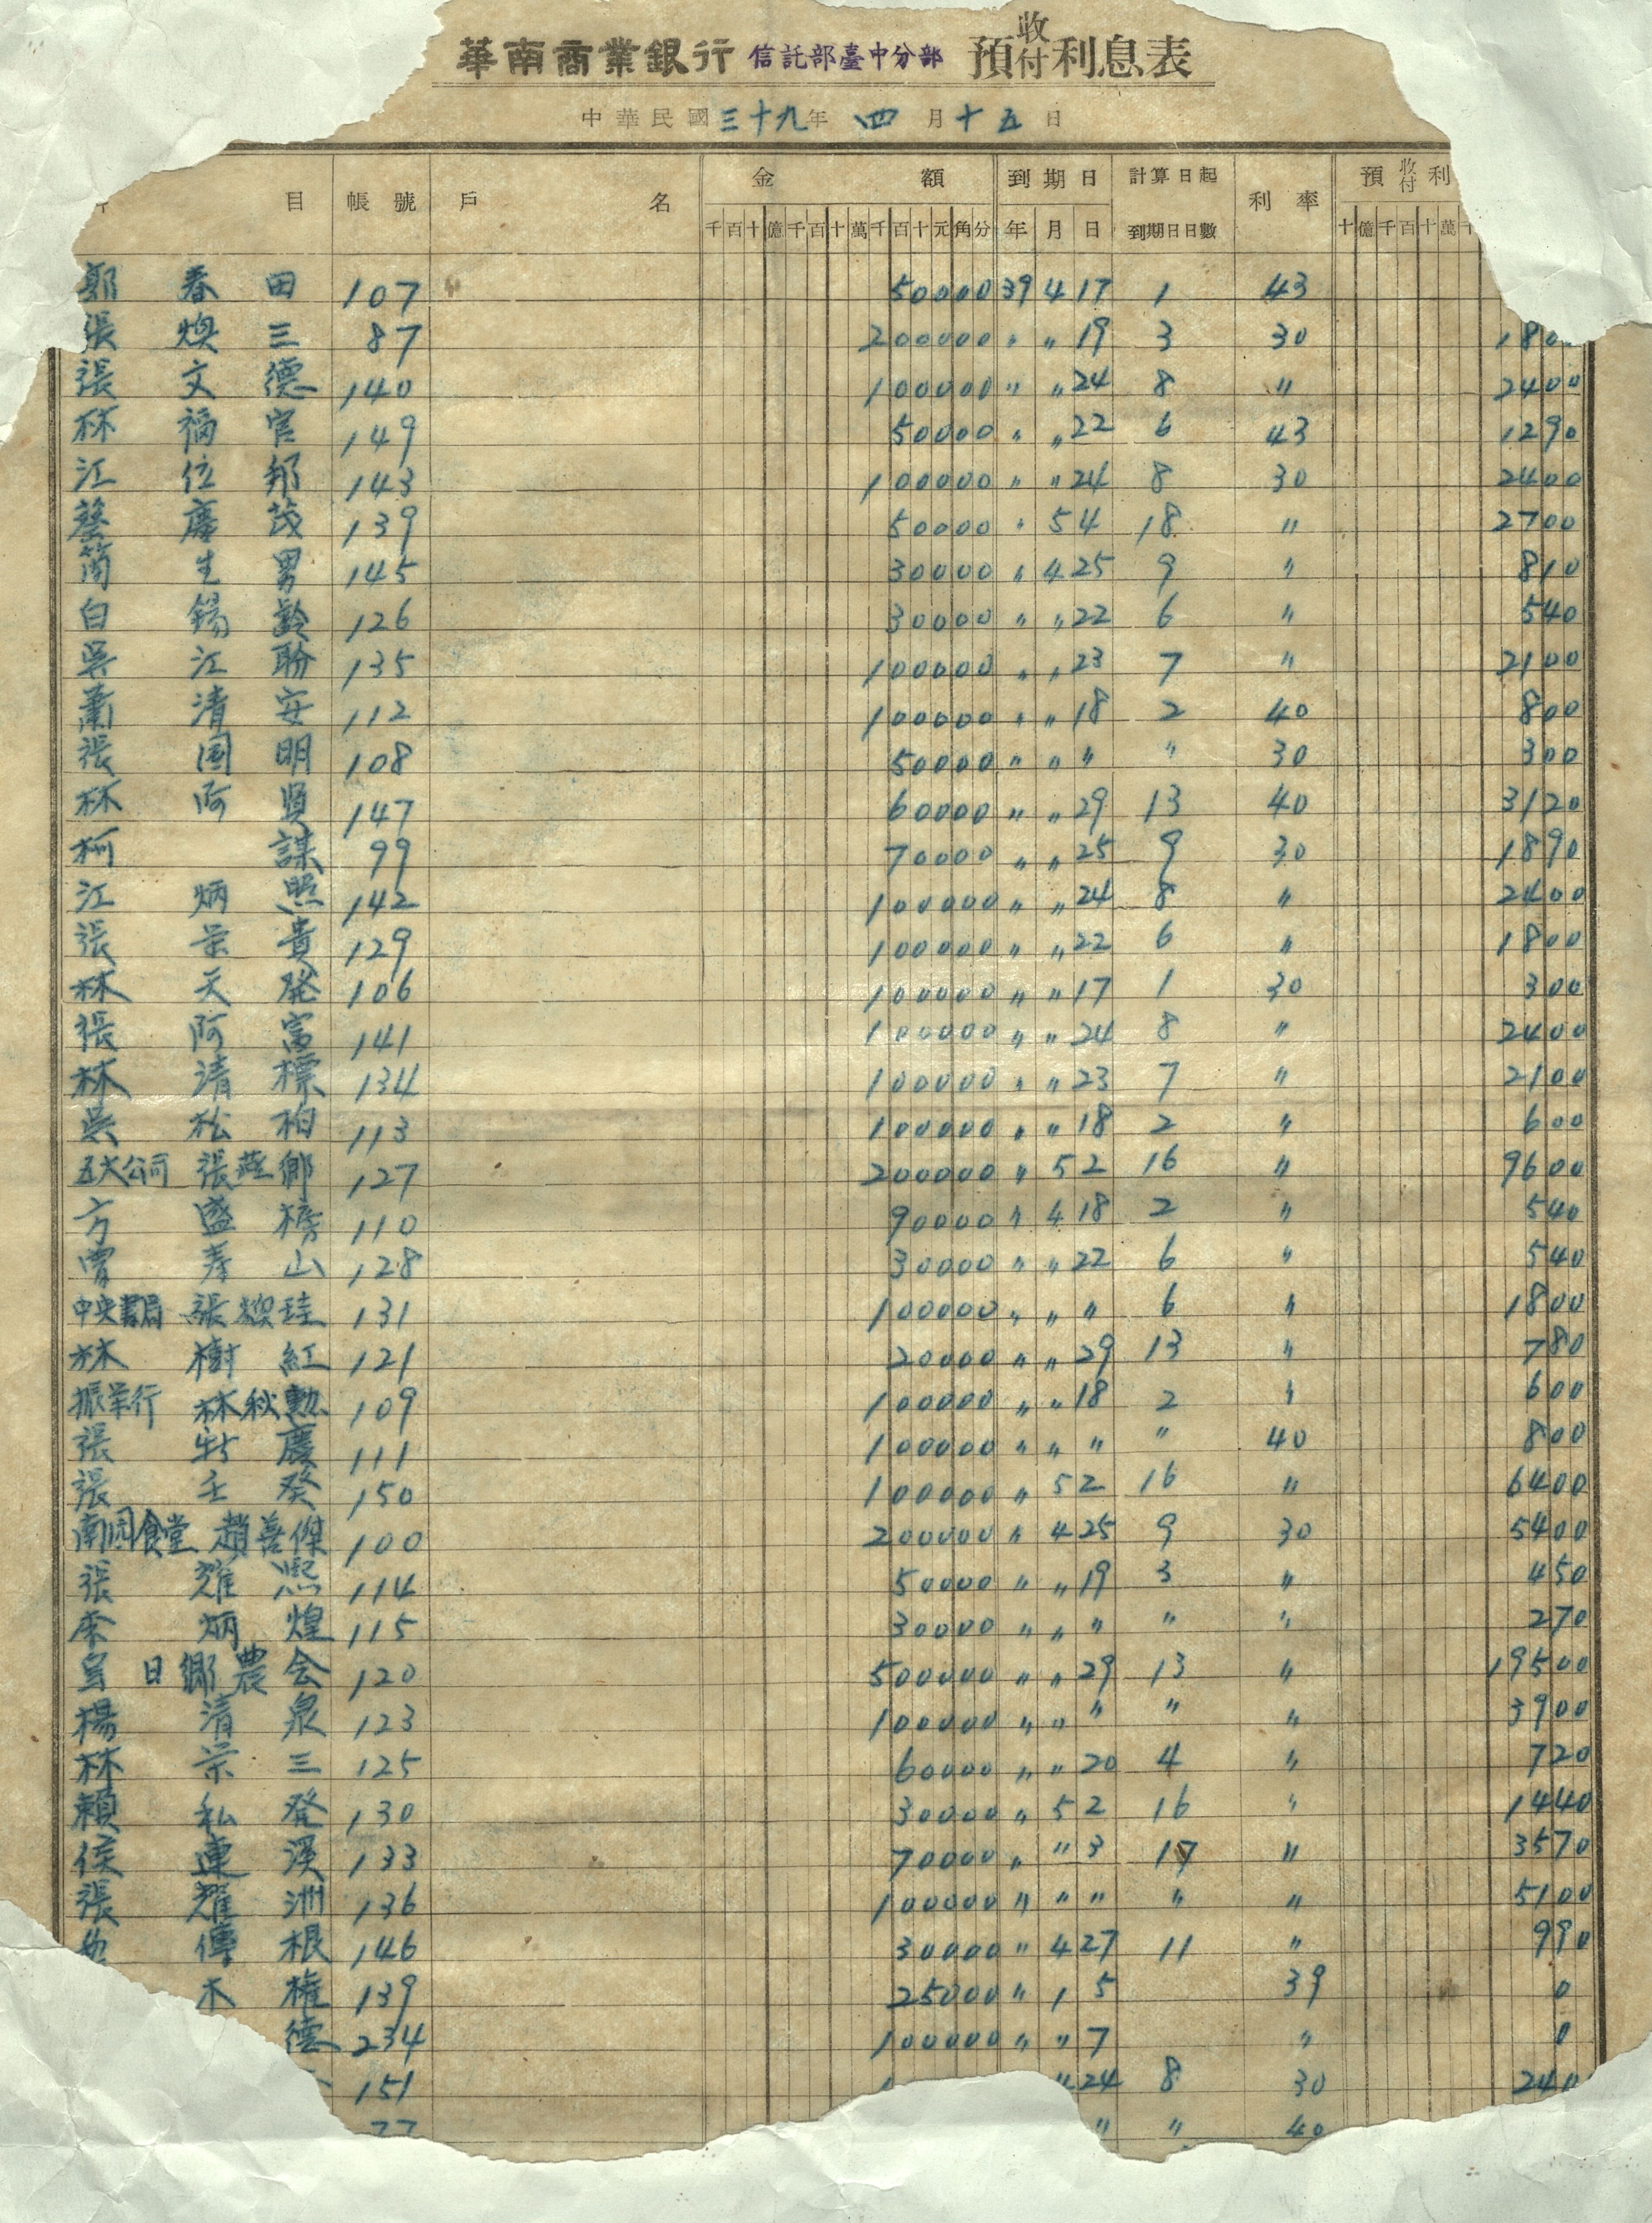 華南商業銀行 信託部臺中分部 預收付利息表
中華民國三十九年 四月十五日
目 帳號 戶名 金額 到期日 計算日起到期日日數 利率 預收付利
千百十億千百十萬千百十元角分 年月日 十億千百十萬
郭春田 107 50000 39 4 17 1 43
張煥三 87 200000 〃 〃 19 3 30 180
張文德 140 100000 〃 〃 24 8 〃 2400
林福官 149 50000 〃 〃 22 6 43 1290
江位邦 143 100000 〃 〃 24 8 30 2400
蔡慶茂 139 50000 〃 5 4 18 〃 2700
簡生男 145 30000 〃 4 25 9 〃 810
白錫齡 126 30000 〃 〃 22 6 〃 540
吳江盼 135 100000 〃 〃 23 7 〃 2100
蕭清安 112 100000 〃 〃 18 2 40 800
張国明 108 50000 〃 〃 〃 〃 30 300
林阿賢 147 60000 〃 〃 29 13 40 3120
柯謀 99 70000 〃 〃 25 9 30 1890
江炳照 142 100000 〃 〃 24 8 〃 2400
張荣貴 129 100000 〃 〃 22 6 〃 1800
林天発 106 100000 〃 〃 17 1 30 300
張阿富 141 100000 〃 〃 24 8 〃 2400
林清標 134 100000 〃 〃 23 7 〃 2100
吳松柏 113 100000 〃 〃 18 2 〃 600
五大公司 張燕鄉 127 200000 〃 5 2 16 〃 9600
方盛榜 110 90000 〃 4 18 2 〃 540
曾寿山 128 30000 〃 〃 22 6 〃 540
中央書局 張煥珪 131 100000 〃 〃 〃 6 〃 1800
林樹紅 121 20000 〃 〃 29 13 〃 780
振業行 林秋勲 109 100000 〃 〃 18 2 〃 600
張慶 111 100000 〃 〃 〃 〃 40 800
張壬癸 150 100000 〃 5 2 16 〃 6400
南园食堂 趙善傑 100 200000 〃 4 25 9 30 5400
張耀熙 114 50000 〃 〃 19 3 〃 450
李炳煌 115 30000 〃 〃 〃 〃 〃 270
日鄉農会 120 500000 〃 〃 29 13 〃 19500
楊清泉 123 100000 〃 〃 〃 〃 〃 3900
林荣三 125 60000 〃 〃 20 4 〃 720
賴私登 130 30000 〃 5 2 16 〃 1440
侯連漢 133 70000 〃 〃 3 17 〃 3570
張耀洲 136 100000 〃 〃 〃 〃 〃 5100
傳根 146 30000 〃 4 27 11 〃 990
木権 139 25000 〃 1 5 39 0
德 234 100000 〃 〃 7 〃 0
151 1 〃 24 8 30 240
77 〃 〃 40